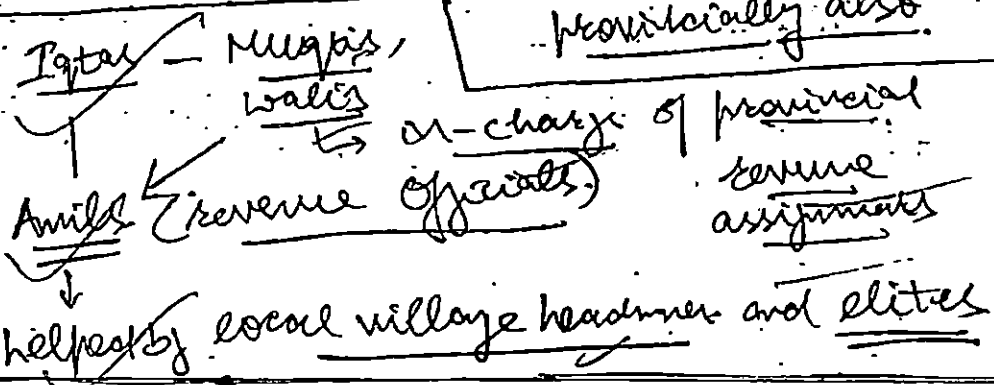 provincially also.
Iqtas – Muqtis,
walis
↳ in-charge of provincial
revenue
assignments
Amils (revenue officials)
↓
helped by local village headmen and elites